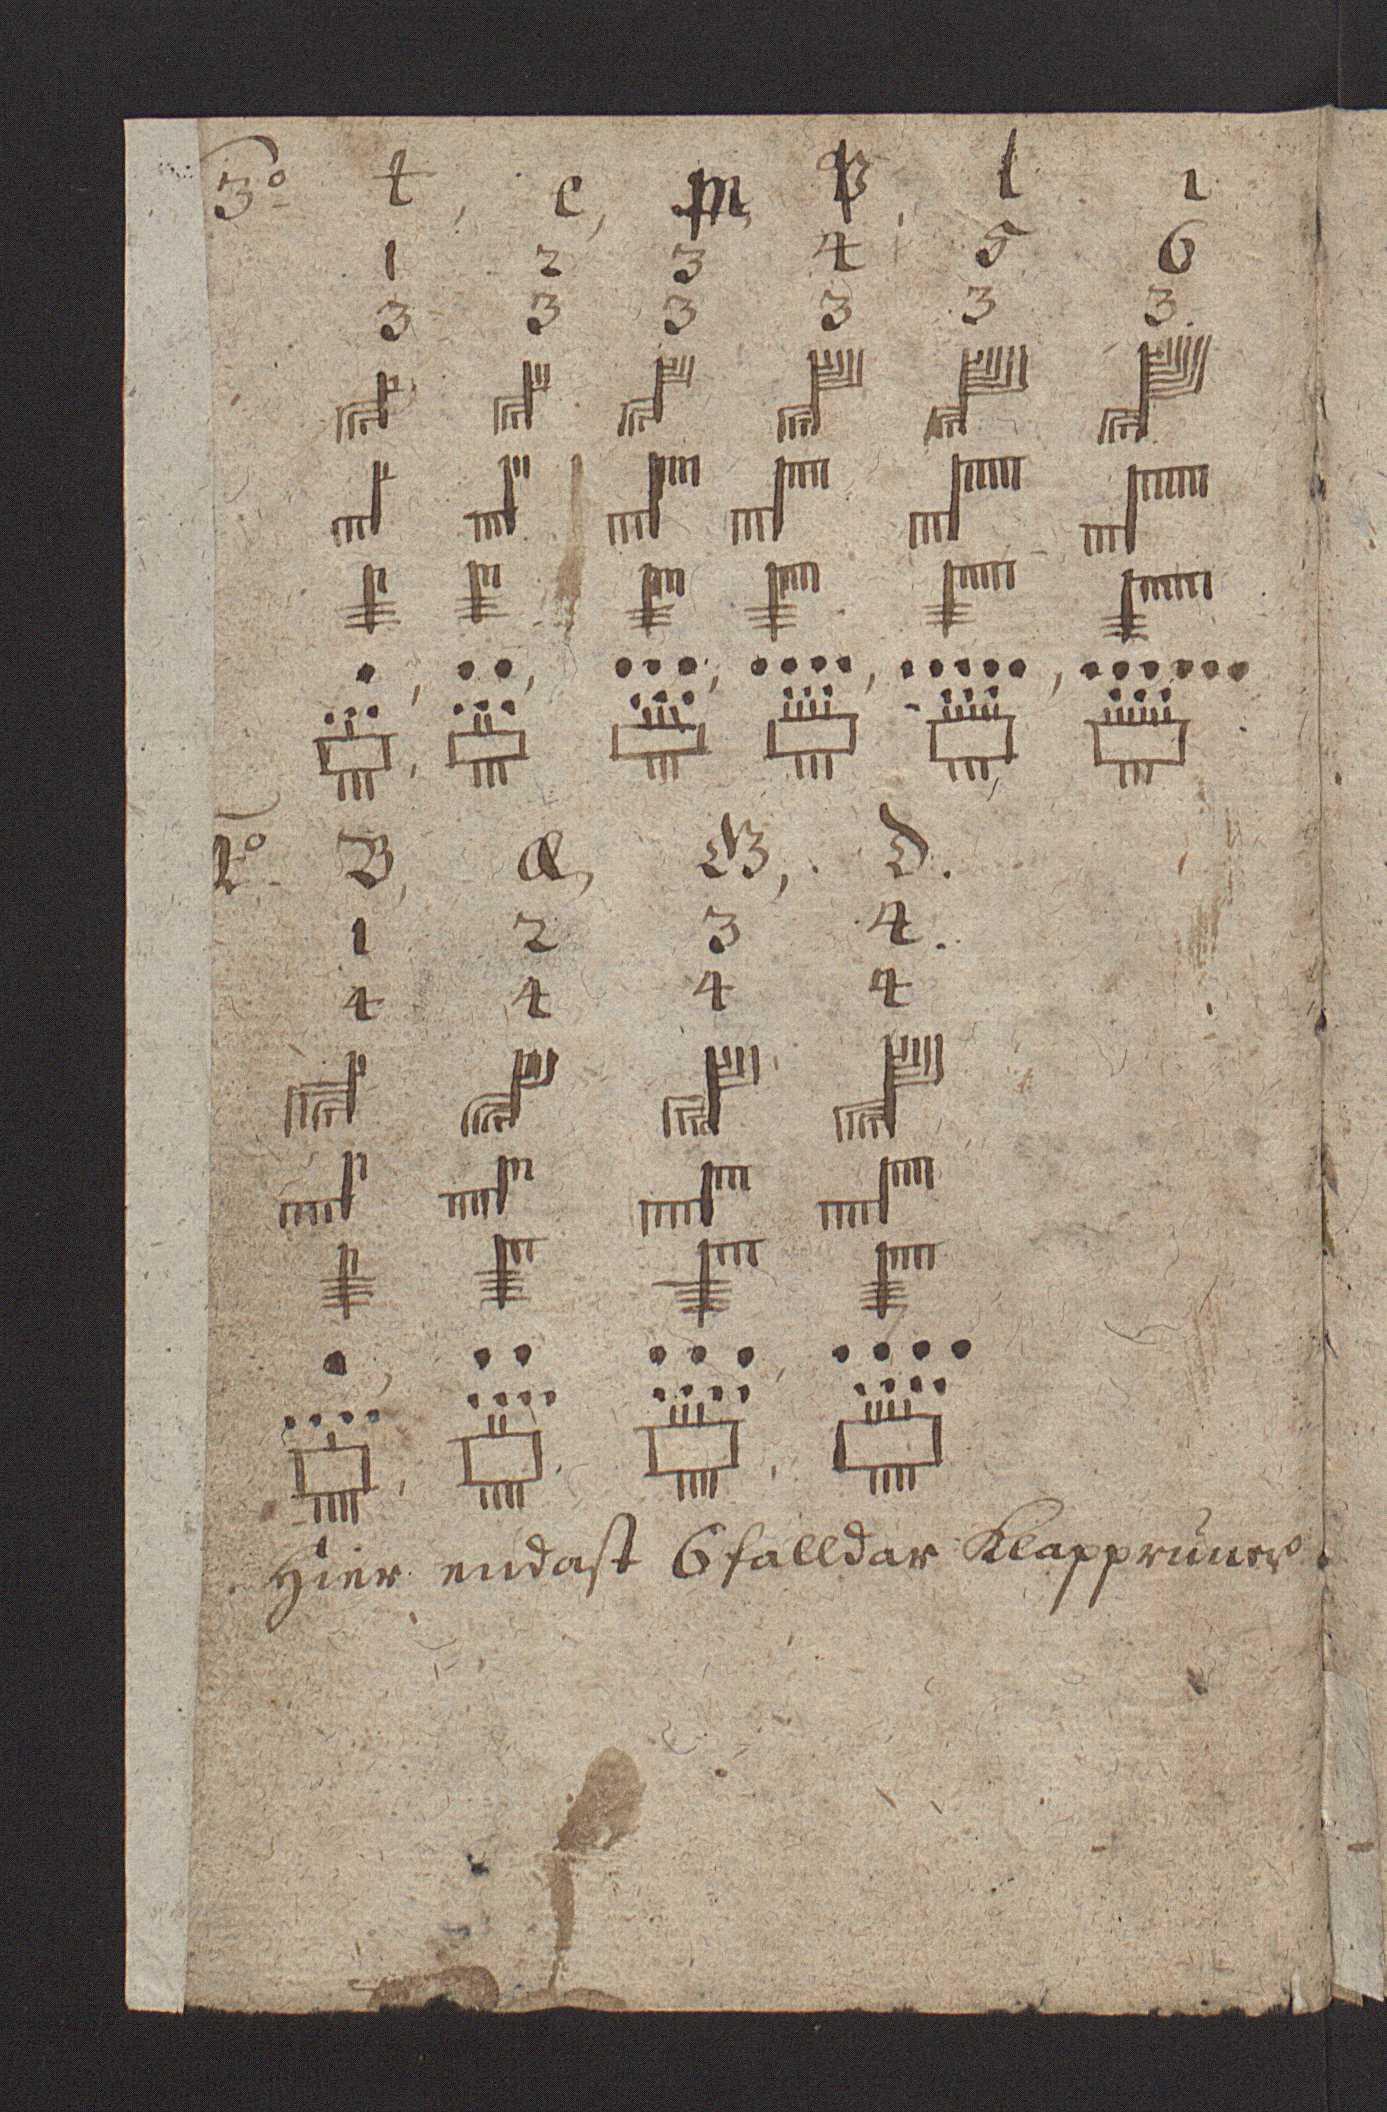 3º t, e, m, p, l ı
1 2 3 4 5 6
3 3 3 3 3 3.
B, Æ, Œ,. D.
1 2 3 4.
4 4 4 4
Hier endast 6falldar Klapprúner.